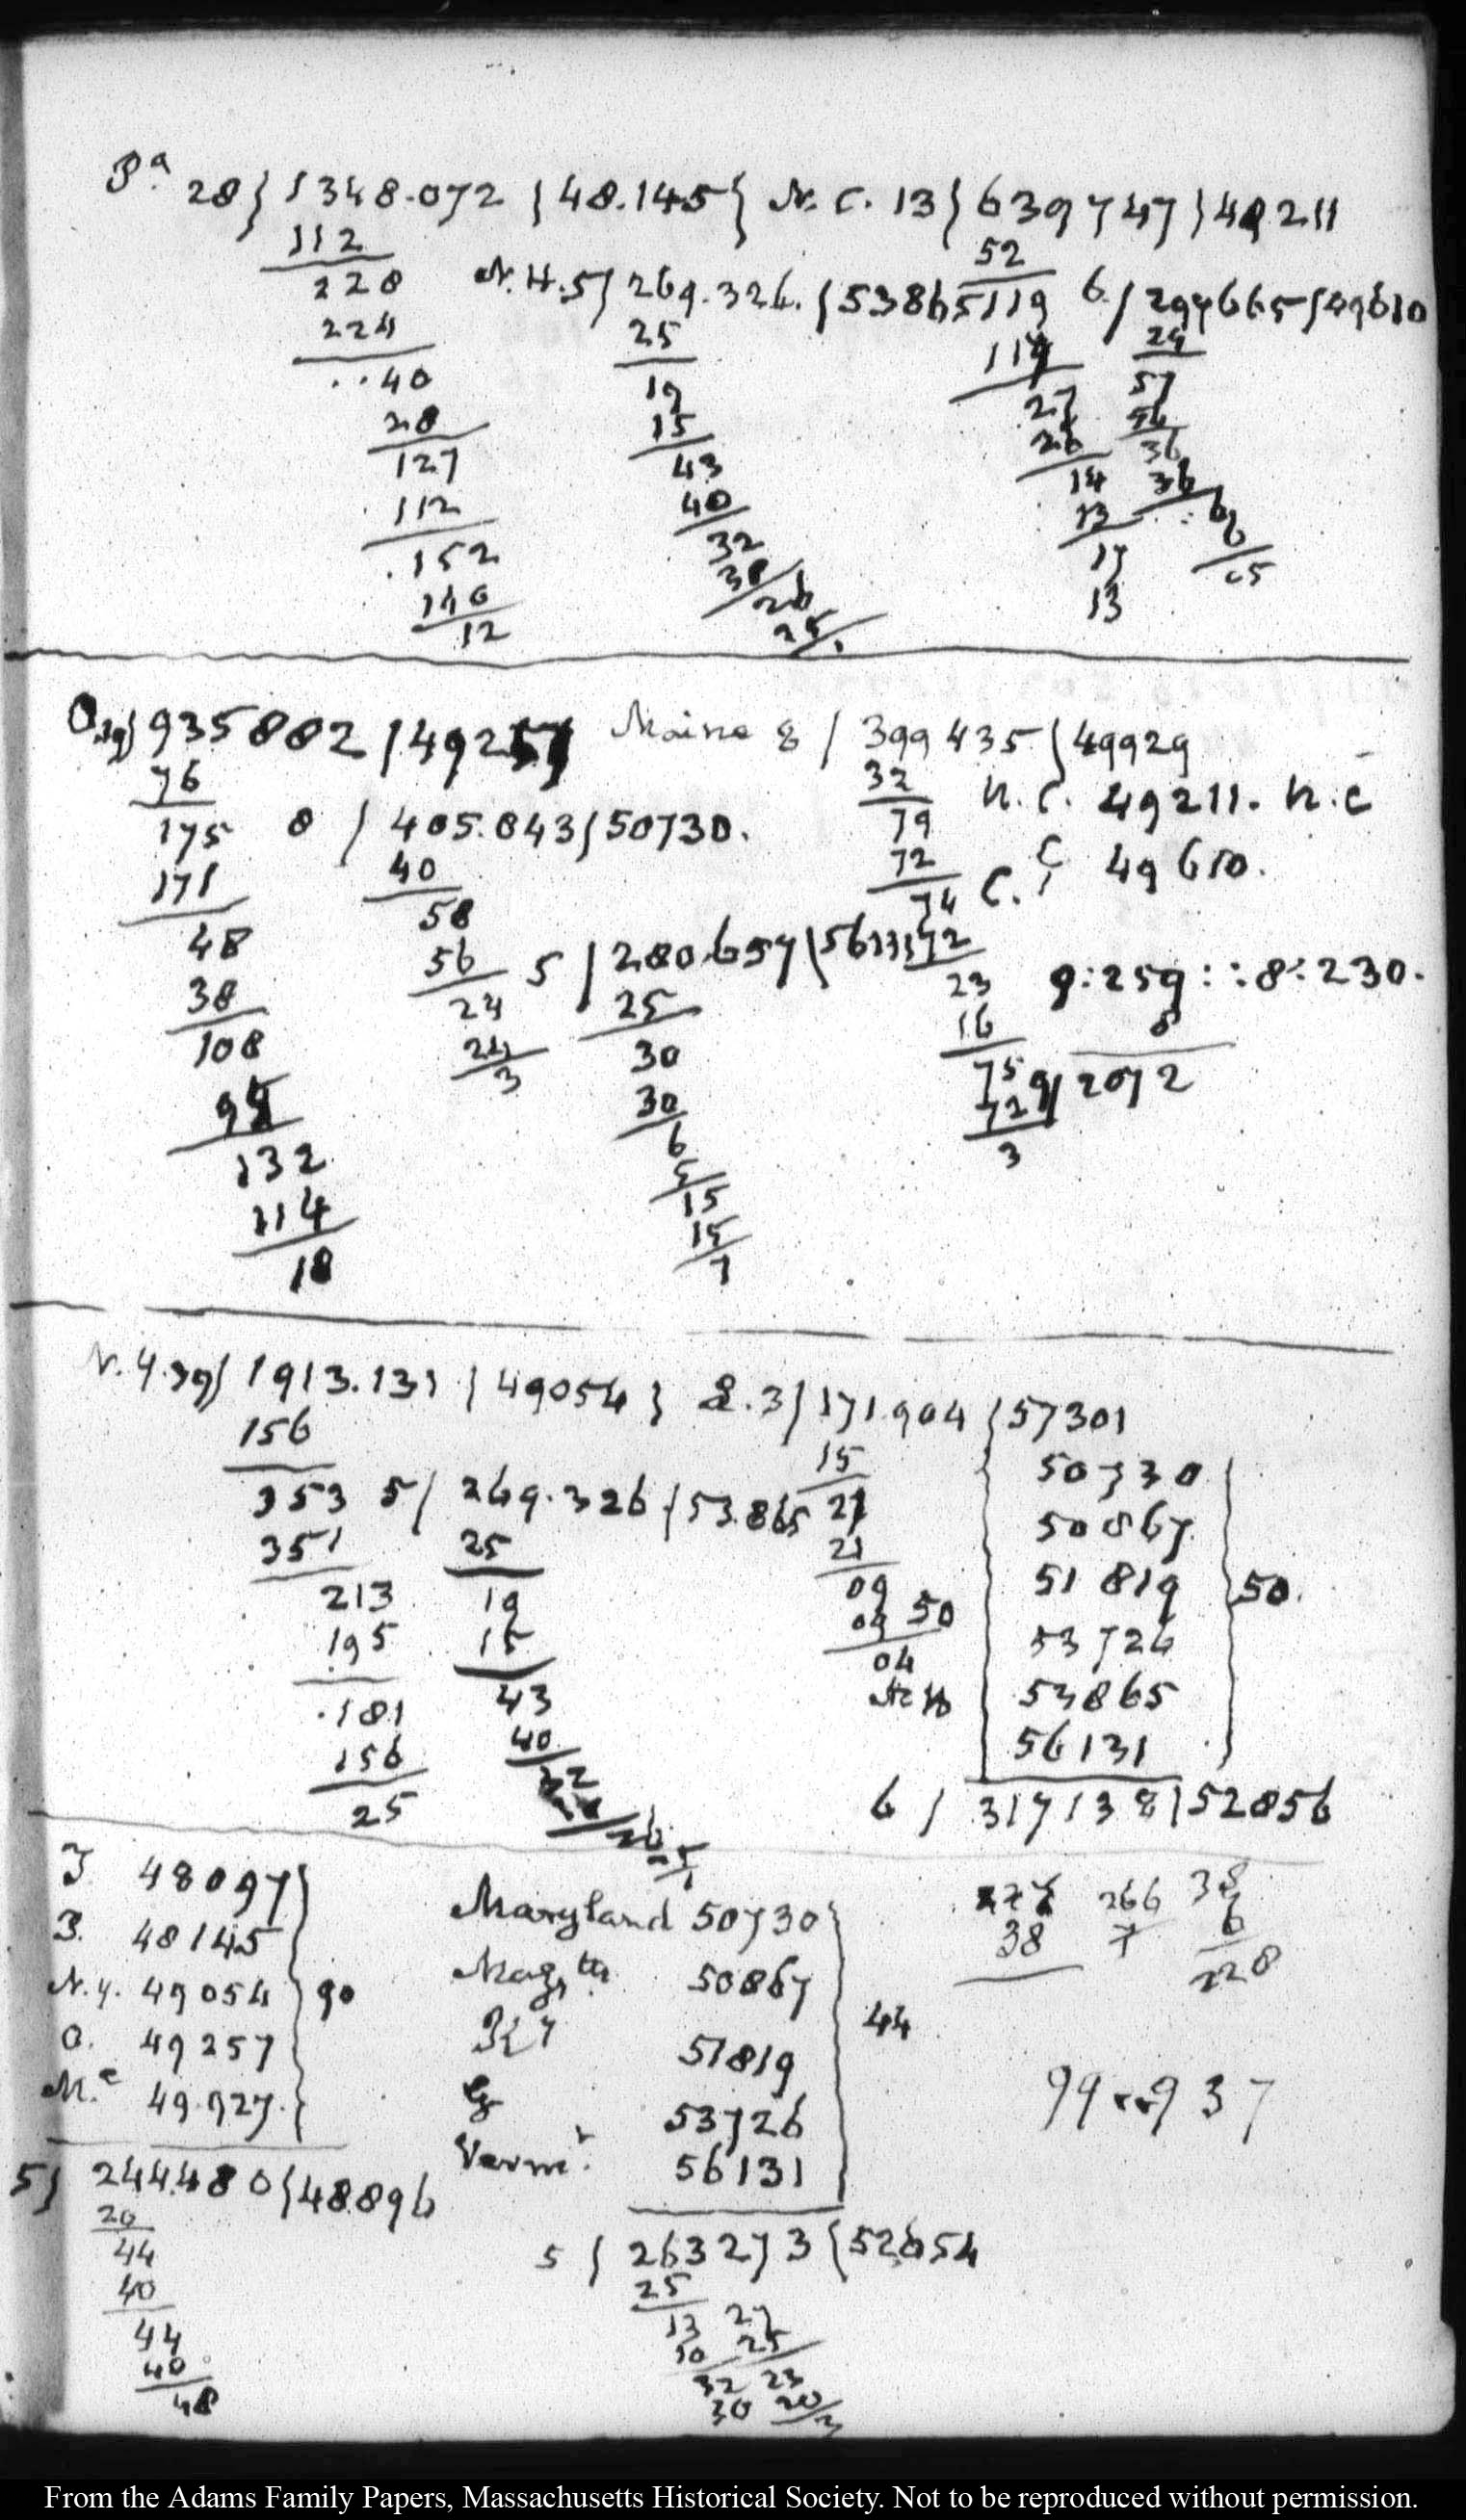 Pa. 28} 1348.072 {48.145} N. C. 13} 639747 } 49211
112
220
224
..40
28
127
112
.152
140
12
N.H. 5/ 269.326. {53865
25
19
15
43
40
32
30
26
25
52
119
117
27
26
14
13
17
13
6/ 297665 {49610
24
57
54
36
36
6
6
05
O. 19} 935882 /49257 Maine 8 / 399435 {49929
76
175
171
48
38
108
95
132
114
18
8 / 405.843 {50730.
40
58
56
24
24
3
5 / 280.657 {56131
25
30
30
6
5
15
15
7
32
79
72
74
72
23
16
75
72
3
N. C. 49211. N. C
C. 49610.
9:259::8:230.
8
9/ 2072
N. Y. 39} 1913.131 {49054} 3/ 171.904 {57301
156
353
351
213
195
.181
156
25
5/ 269.326 {53.865
25
19
15
43
40
32
26
15
21
21
09
09
04
50
N H
50730
50867
51819
53726
53865
56131
50.
6 / 317138 {52856
J 48097
P. 48145
N. Y. 49054
O. 49257
M.e 49.927.
90
5} 244.480 {48896
20
44
40
44
40
48
Maryland 50730
50867
Ky 51819
53726
Vermt. 56131
44
5 { 263273 {52654
25
13
10
32
30
27
25
23
20
3
38
266
7
38
6
228
99..937
From the Adams Family Papers, Massachusetts Historical Society. Not to be reproduced without permission.